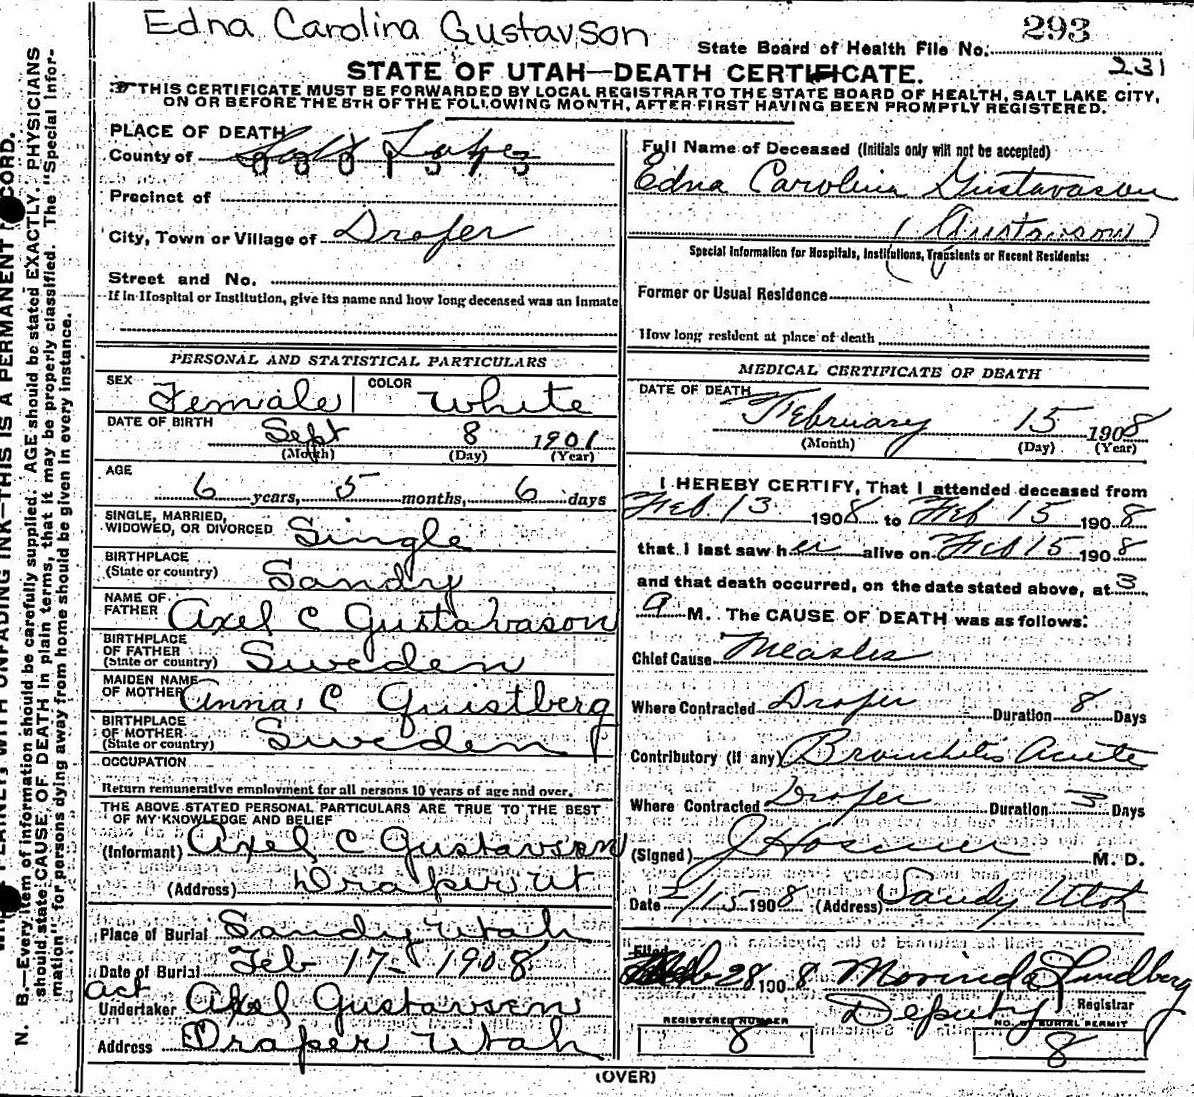 Edna Carolina Gustavson
293
State Board of Health File No.
231
STATE OF UTAH—DEATH CERTIFICATE.
THIS CERTIFICATE MUST BE FORWARDED BY LOCAL REGISTRAR TO THE STATE BOARD OF HEALTH, SALT LAKE CITY,
ON OR BEFORE THE 5TH OF THE FOLLOWING MONTH, AFTER FIRST HAVING BEEN PROMPTLY REGISTERED.
PLACE OF DEATH
County of Salt Lake
Precinct of
City, Town or Village of Draper
Street and No.
If in Hospital or Institution, give its name and how long deceased was an inmate
PERSONAL AND STATISTICAL PARTICULARS
SEX Female COLOR White
DATE OF BIRTH Sept 8 1901
(Month) (Day) (Year)
AGE
6 years, 5 months, 6 days
SINGLE, MARRIED,
WIDOWED, OR DIVORCED Single
BIRTHPLACE
(State or country) Sandy
NAME OF
FATHER Axel C Gustavason
BIRTHPLACE
OF FATHER
(State or country) Sweden
MAIDEN NAME
OF MOTHER Anna C Quistberg
BIRTHPLACE
OF MOTHER
(State or country) Sweden
OCCUPATION
Return remunerative employment for all persons 10 years of age and over.
THE ABOVE STATED PERSONAL PARTICULARS ARE TRUE TO THE BEST
OF MY KNOWLEDGE AND BELIEF
(Informant) Axel C Gustavsen
(Address) Draper Ut
Place of Burial Sandy Utah
Date of Burial Feb 17 - 1908
act
Undertaker Axel Gustavsen
Address Draper Utah
Full Name of Deceased (Initials only will not be accepted)
Edna Carolina Gustavason
(Gustavson)
Special Information for Hospitals, Institutions, Transients or Recent Residents:
Former or Usual Residence
How long resident at place of death
MEDICAL CERTIFICATE OF DEATH
DATE OF DEATH
February 15 1908
(Month) (Day) (Year)
I HEREBY CERTIFY, That I attended deceased from
Feb 13 1908 to Feb 15 1908
that I last saw her alive on Feb 15 1908
and that death occurred, on the date stated above, at 3
a M. The CAUSE OF DEATH was as follows:
Chief Cause Measles
Where Contracted Draper Duration 8 Days
Contributory (if any) Bronchitis Acute
Where Contracted Draper Duration 3 Days
(Signed) M. D.
Date 2/15 1908 (Address) Sandy Utah
Filed
Feb 28 1908 Morinda Lundberg
Deputy Registrar
REGISTERED NUMBER
8
NO. BURIAL PERMIT
8
(OVER)
N. B.—Every item of information should be carefully supplied. AGE should be stated EXACTLY. PHYSICIANS
should state CAUSE OF DEATH in plain terms, that it may be properly classified. The "Special Infor-
mation" for persons dying away from home should be given in every instance.
WITH UNFADING INK—THIS IS A PERMANENT